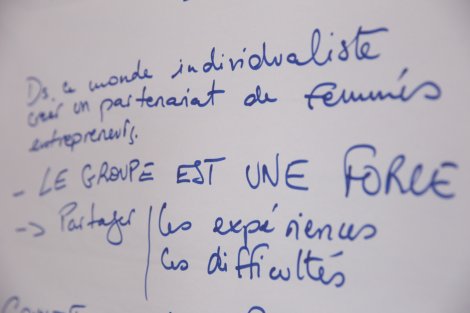 Ds ce monde individualiste
créer un partenariat de femmes
entrepreneurs.
- LE GROUPE EST UNE FORCE
-> Partager | les expériences
les difficultés